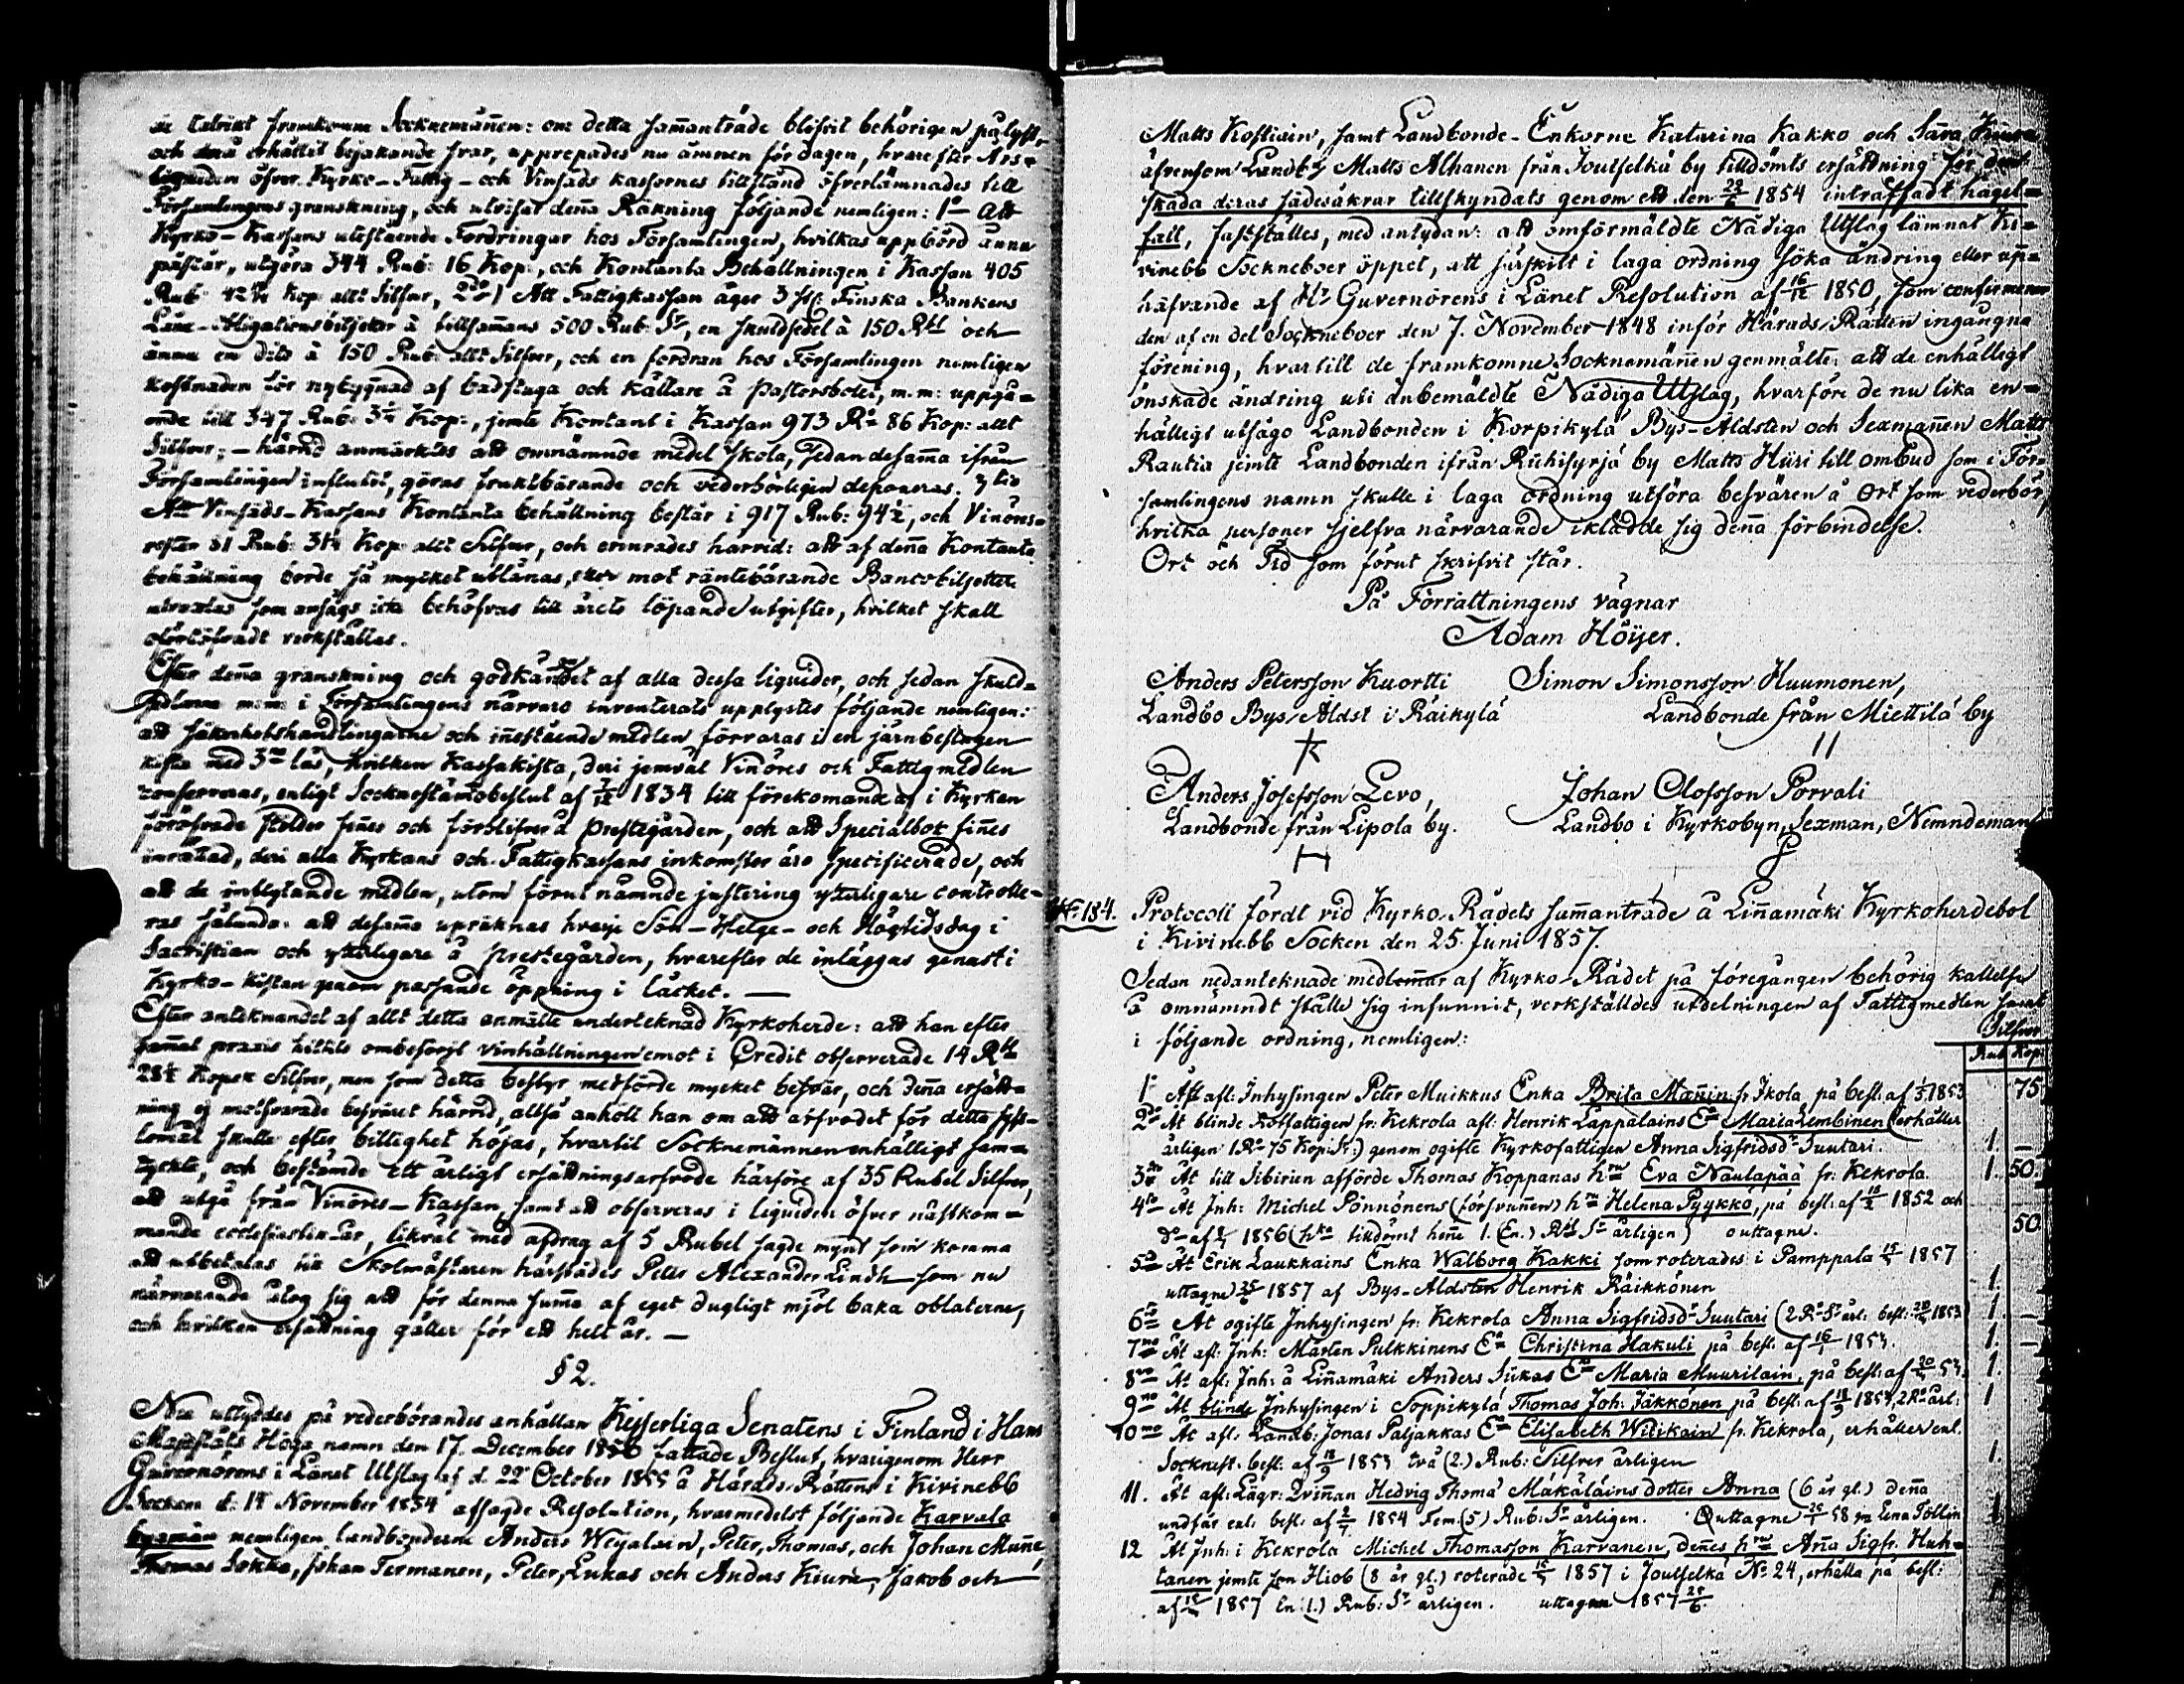 de talrikt framkomne Sockenemännen: om detta sammanträde blifvit behörigen pålyst,
och derå erhållit bejakande svar, upprepades nu ämnen för dagen, hvarefter Års-
liquiden öfver Kyrko-Fattig- och Vinsäds kassornes tillstånd öfverlämnades till
Församlingens granskning, och utvisar denna Räkning följande nemligen: 1o Att
Kyrko-Kassans utestående Fordringar hos Församlingen, hvilkas uppbörd ännu
påstår, utgöra 344 Rub: 16 Kop:, och Kontanta Behållningen i Kassan 405
Rub: 42 Kop allt Silfver, 2do) Att Fattigkassan äger 3 st: Finska Bankens
Låne-Obligationsbiljetter à tillsammans 500 Rub: Sr, en skuldsedel à 150 Rbl och
ännu en dito à 150 Rub: allt Silfver, och en fordran hos Församlingen nemligen
kostnaden för nybyggnad af badstuga och källare å pastorsbolet, m. m: uppgå-
ende till 347 Rub: 3¼ Kop:, jemte Kontant i Kassan 973 Ro 86 Kop: allt
Silfver; - härvid anmärktes att omnämnde medel skola, sedan desamma ifrån
Församlingen influtit, göras fruktbärande och vederbörligen deponeras. 3tio
Att Vinsäds-Kassans Kontanta behållning består i 917 Rub: 94½, och Vinöres-
rester 31 Rub: 31¼ Kop: allt Silfver, och erinrades härvid: att af denna Kontanta
behållning borde så mycket utlånas, eller mot räntebärande Bancobiljetter
utvexlas som ansågs icke behöfvas till årets löpande utgifter, hvilket skall
oförtöfvadt verkställas.
Efter denna granskning och godkändet af alla dessa liquider, och sedan skuld-
sedlarne m:m: i Församlingens närvaro inventerats upplystes följande nemligen:
att säkerhetshandlingarne och innestående medlen förvaras i en järnbeslagen
kista med 3ne lås, hvilken Kassakista, deri jemväl Vinöres och Fattigmedlen
conserveras, enligt Sockneståmobeslut af 1834 till förekomande af i Kyrkan
föröfvade stölder finnes och förblifver å prestegården, och att Specialbok finnes
inrättad, deri alla Kyrkans och Fattigkassans inkomster äro specificerade, och
att de inflytande medlen, utom förut nämnde justering ytterligare controlle-
ras sålunda: att desamma uppräknas hvarje Sön-Helge- och Högtidsdag i
Sacristian och ytterligare å prestegården, hvarefter de inläggas genast i
Kyrko-kistan genom passande öppning i låcket. —
Efter antecknandet af allt detta anmälte undertecknad Kyrkoherde: att han efter
gammal praxis hittils ombesörjt vinhållningen emot i Credit observerade 14 Rbl
28½ Kopek Silfver, men som detta bestyr medförde mycket besvär, och denna ersätt-
ning ej motsvarade besväret härvid, alltså anhöll han om att arfvodet för detta syss-
lomål skulle efter billighet höjas, hvartil Socknemännen enhälligt sam-
tyckte, och bestämde ett årligt ersättningsarfvode härföre af 35 Rubel Silfver,
att utgå från Vinöres-Kassan, samt att observeras i liquiden öfver nästkom-
mande ecclesiastik-år, likväl med afdrag af 5 Rubel sagde mynt som komma
att utbetalas till Skolmästaren härstädes Petter Alexander Lindh som nu
närvarande åtog sig att för denna summa af eget dugligt mjöl baka oblaterne,
och hvilken ersättning gäller för ett helt år. —
§ 2.
Nu upplyddes på vederbörandes anhållan Kejserliga Senatens i Finland i Hans
Majestäts Höga namn den 17. December 1856 fattade Beslut, hvarigenom Herr
Guvernörens i Länet Utslag af d. 22 October 1855 å Härads-Rättens i Kivinebb
Socken d: 14 November 1854 afsagde Resolution, hvarmedelst följande Karvala
byamän nemligen landbönderne Anders Weyalain, Peter, Thomas, och Johan Munne,
Thomas Sokka, Johan Termanen, Peter, Lukas och Anders Kiuru, Jakob och
Matts Kostiain, samt Landbonde-Enkorne Katarina Kakko och Sara Kiuru
äfvensom Landb. Matts Alhanen från Joutselkä by tilldömts ersättning för den
skada deras sädesåkrar tillskyndats genom ett den 1854 inträffadt hagel-
fall, fastställes, med antydan: att omförmäldte Nådiga Utslag lämnat Ki-
vinebb Sockneboer öppet, att särskilt i laga ordning söka ändring eller up-
häfvande af Hr Guvernörens i Länet Resolution af 16/12 1850, som confirmerar
den af en del Sockneboer den 7. November 1848 inför Härads-Rätten ingångna
förening, hvartill de framkomne Socknemännen genmälte: att de enhälligt
önskade ändring uti änbemäldte Nådiga Utslag, hvarföre de nu lika en-
hälligt utsågo Landbonden i Korpikylä Bys-Åldsten och Sexmannen Matts
Rautia jemte Landbonden ifrån Riihisyrjä by Matts Hiiri till ombud som i För-
samlingens namn skulle i laga ordning utföra besvären å Ort som vederbör,
hvilka personer sjelfva närvarande iklädde sig denna förbindelse.
Ort och Tid som förut skrifvit står.
På Förrättningens vägnar
Adam Höijer.
Anders Petersson Kuortti Simon Simonsson Huumonen,
Landbo Bys Åldst i Räikylä Landbonde från Miettilä by
Anders Josefsson Levo, Johan Olofsson Porvali
Landbonde från Lipola by. Landbo i Kyrkobyn, Sexman, Nemndeman
No 184. Protocoll fördt vid Kyrko-Rådets sammanträde å Linnamäki Kyrkoherdebol
i Kivinebb Socken den 25. Juni 1857.
Sedan nedanteknade medlemmar af Kyrko-Rådet på föregången behörig kallelse
å omnämndt ställe sig infunnit, verkställdes utdelningen af Fattigmedlen
i följande ordning, nemligen: Silfver
Rub Kop:
1o Åt afl: Inhysingen Peter Muikkus Enka Brita Mannin fr. Ikola på besl: af 1853 75
2do Åt blinde Rotfattigen fr: Kekrola afl: Henrik Lappalains Ea Maria Lembinen (erhåller
årligen 1 Ro 75 Kop: Sr:) genom ogifte Kyrkofattigen Anna Sigfridsdr Suutari. 1. —
3o Åt till Sibirien afförde Thomas Koppanas hru Eva Naulapää fr. Kekrola. 1. 50
4to Åt Inh: Michel Pönnönens (försvunnen) hru Helena Pyykkö, på besl: af 1852 och
do af 1856 (hka tildömt henne 1. (En.) Rbl Sr årligen) outtagne. 50
5to Åt Erik Laukkains Enka Walborg Kakki som roterades i Pamppala 1857
uttagne 1857 af Bys-Åldsten Henrik Räikkönen 1.
6to Åt ogifte Inhysingen fr: Kekrola Anna Sigfridsdr Suutari (2 Ro Sr årl: besl: 1853 1. —
7mo Åt afl: Inh: Mårten Pulkkinens Ea Christina Hakuli på besl: af 1853. 1. —
8vo Åt afl: Inh: å Linnamäki Anders Siikas Ea Maria Muurilain, på besl: af 53. 1.
9no Åt blinde Inhysingen i Soppikylä Thomas Joh: Jäkkönen på besl: af 1853, 2 Ro årl: 1
10mo Åt afl: Landb: Jonas Paljakkas Ea Elisabeth Wilikain fr. Kekrola, erhåller enl.
Socknest: besl: af 1853 två (2.) Rub: Silfver årligen 1.
11. Åt afl: Lägr: Qvinnan Hedvig Thoma Mäkäläins dotter Anna (6 år gl.) denna
undfår enl: besl: af 1854 Fem (5) Rub: Sr årligen. Outtagne 58 Lena Töllin
12 Åt Inh: i Kekrola Michel Thomasson Karvanen, dennes hru Anna Sigfr: Huh-
tanen jemte son Hiob (8 år gl.) roterade 1857 i Joutselkä No 24, erhålla på besl:
af 1857 En (1.) Rub: Sr årligen. uttagne 1857